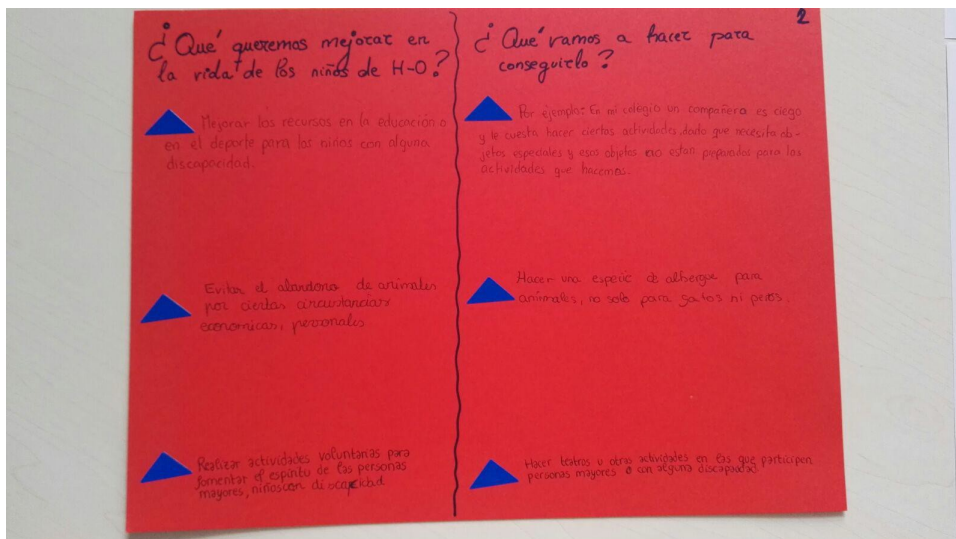 2
¿Qué queremos mejorar en
la vida de los niños de H-O?
Mejorar los recursos en la educación o
en el deporte para los niños con alguna
discapacidad.
Evitar el abandono de animales
por ciertas circunstancias
economicas, personales
Realizar actividades voluntarias para
fomentar el espíritu de las personas
mayores, niños con discapacidad
¿Qué vamos a hacer para
conseguirlo?
Por ejemplo: En mi colegio un compañero es ciego
y le cuesta hacer ciertas actividades, dado que necesita ob-
jetos especiales y esos objetos no estan preparados para las
actividades que hacemos.
Hacer una especie de albergue para
animales, no solo para gatos ni perros.
Hacer teatros u otras actividades en las que participen
personas mayores o con alguna discapacidad.